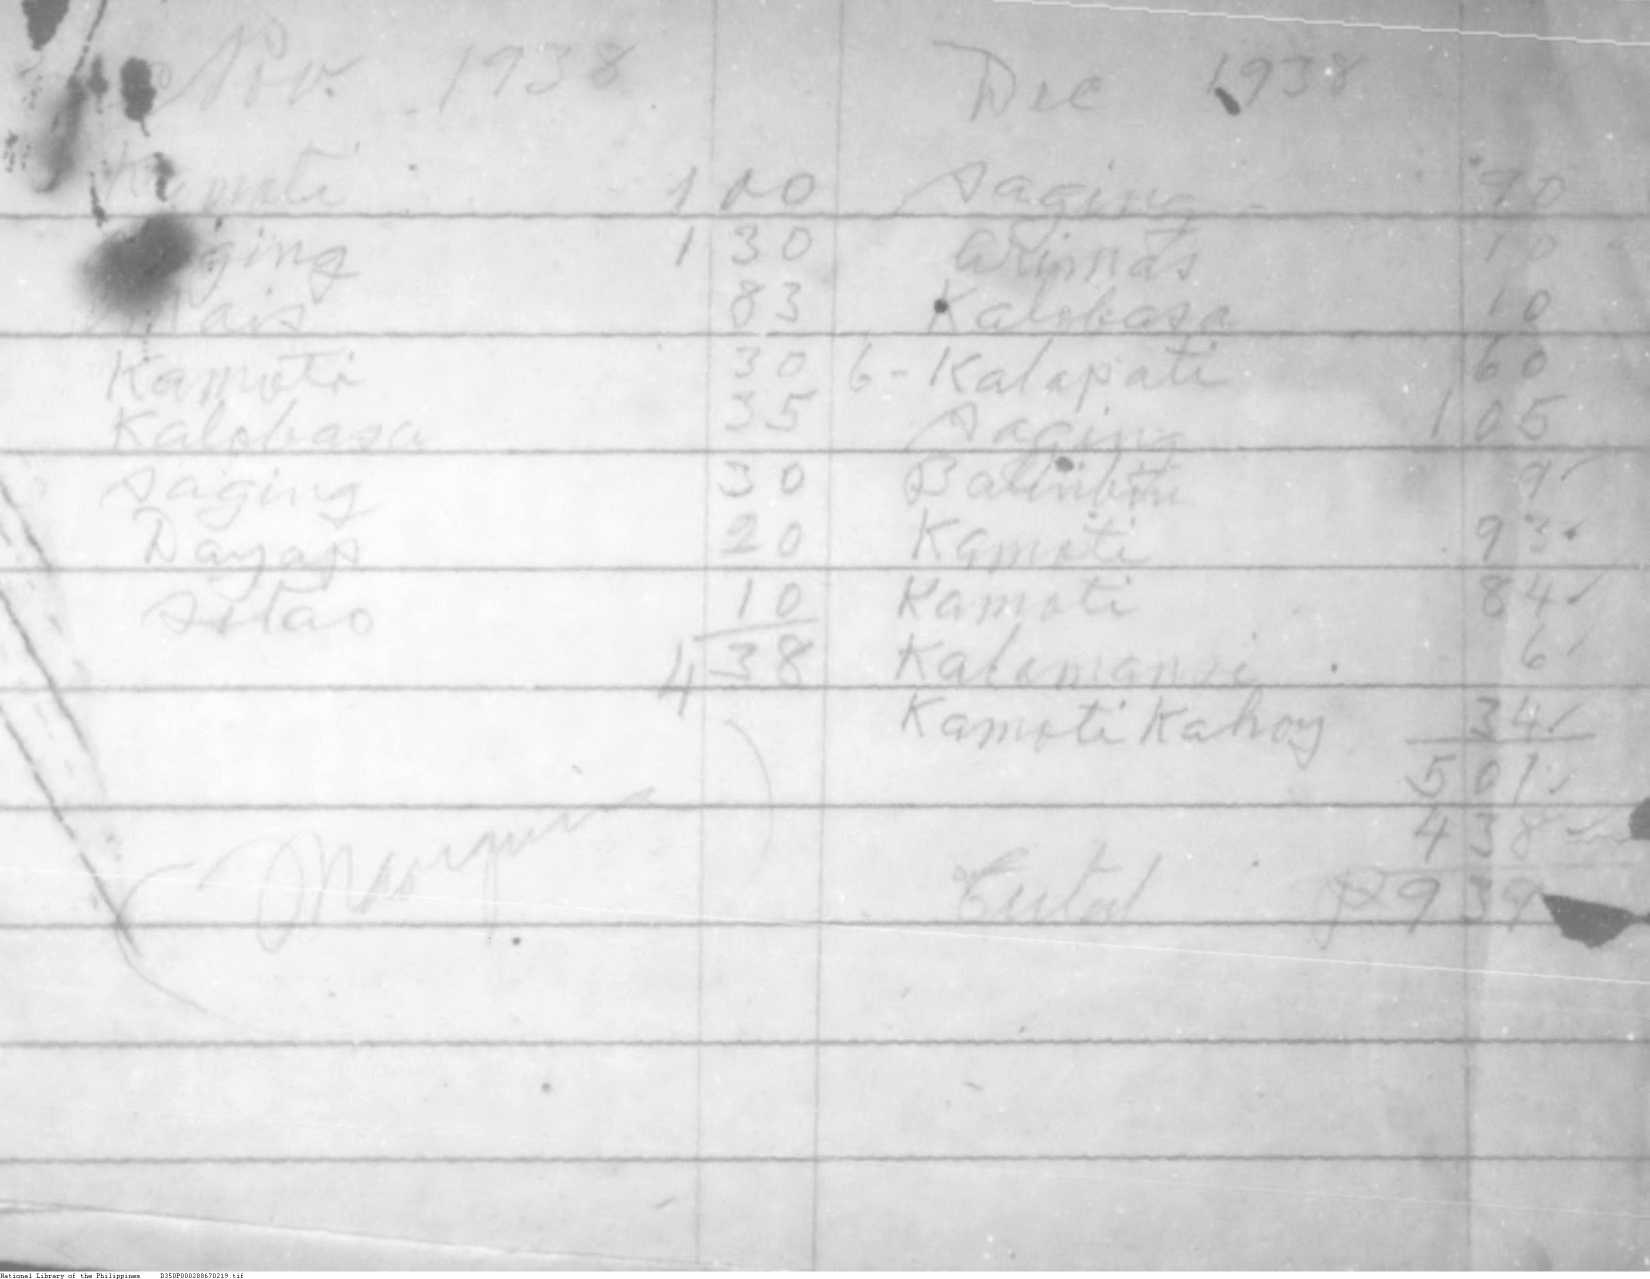 Nov. 1938
Kamoti 1 00
ging 1 30
Mais 83
Kamoti 30
Kalobasa 35
saging 30
Dayap 20
sitao 10
4 38
Dec 1938
saging 90
10
Kalobasa 10
6 - Kalapati 60
saging 1 05
Balinbin 9
Kamoti 93
Kamoti 84
Kalamansi 6
Kamoti Kahoy 34
5 01
4 38
₱ 9 39
National Library of the Philippines D350P000288670219.tif